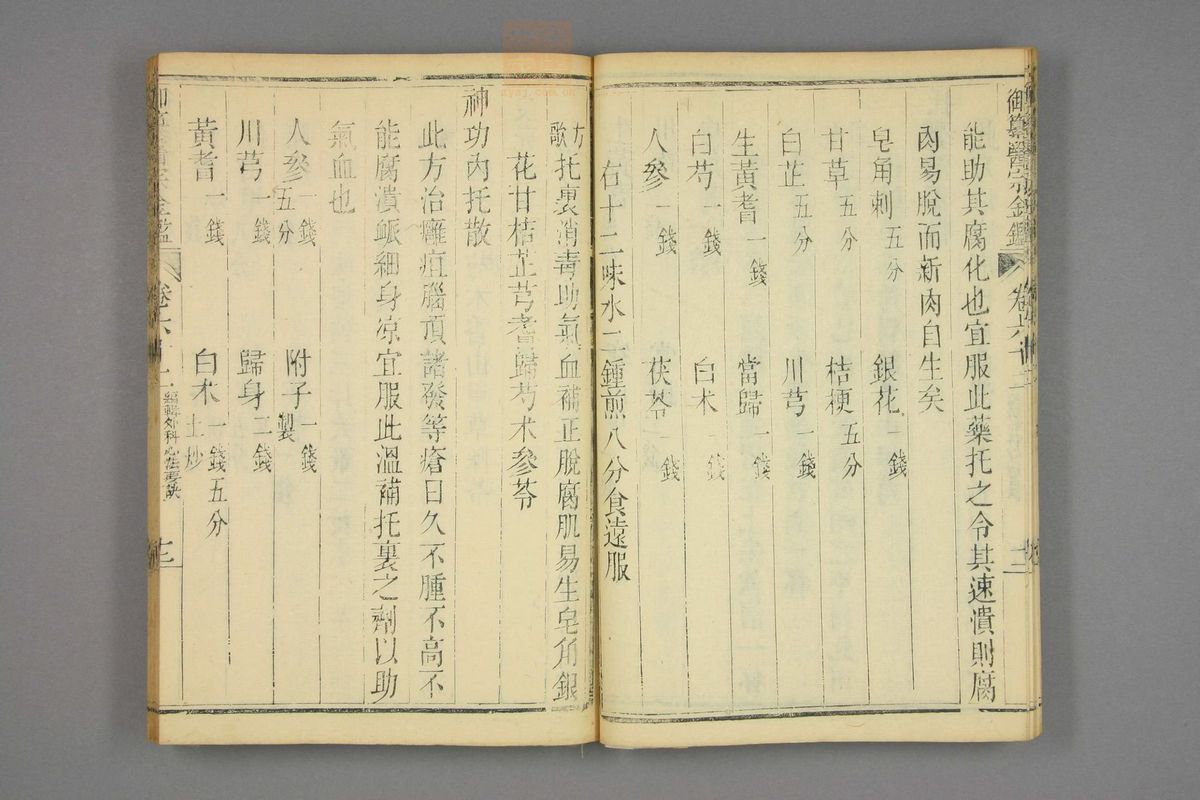 御纂醫宗金鑑
能助其腐化也宜服此藥托之令其速潰則腐
肉易脫而新肉自生矣
皂角刺五分 銀花一錢
甘草五分 桔梗五分
白芷五分 川芎一錢
生黃耆一錢 當歸一錢
白芍一錢 白术一錢
人參一錢 茯苓一錢
右十二味水二鍾煎八分食遠服
方歌 托裏消毒助氣血補正脫腐肌易生皂角銀
花甘桔芷芎耆歸芍术參苓
神功內托散
此方治癰疽腦項諸發等瘡日久不腫不高不
能腐潰脈細身凉宜服此溫補托裏之劑以助
氣血也
人參一錢五分 附子製一錢
川芎一錢 歸身二錢
黃耆一錢 白术一錢五分土炒
卷六十二 編輯外科心法要訣